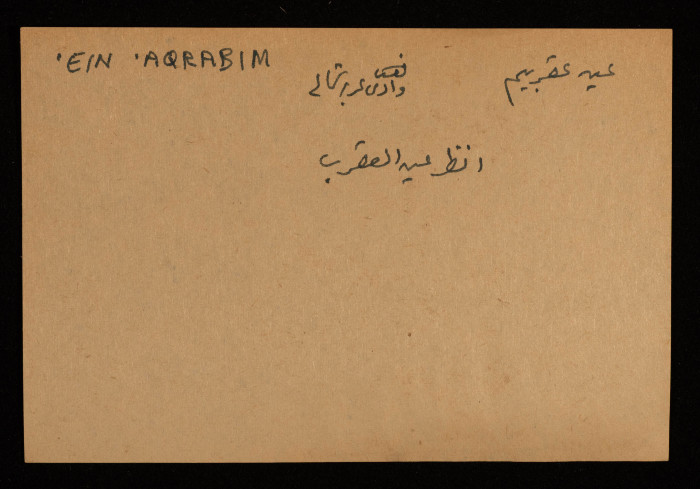 'EIN 'AQRABIM
عين عقربيم
وادى عربه شمالي
انظر عين العقرب